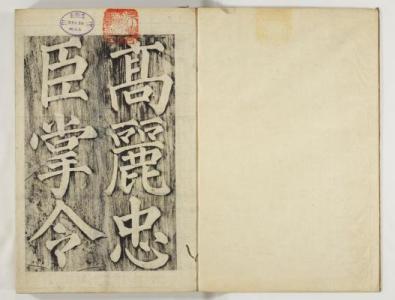 高麗忠
臣掌令